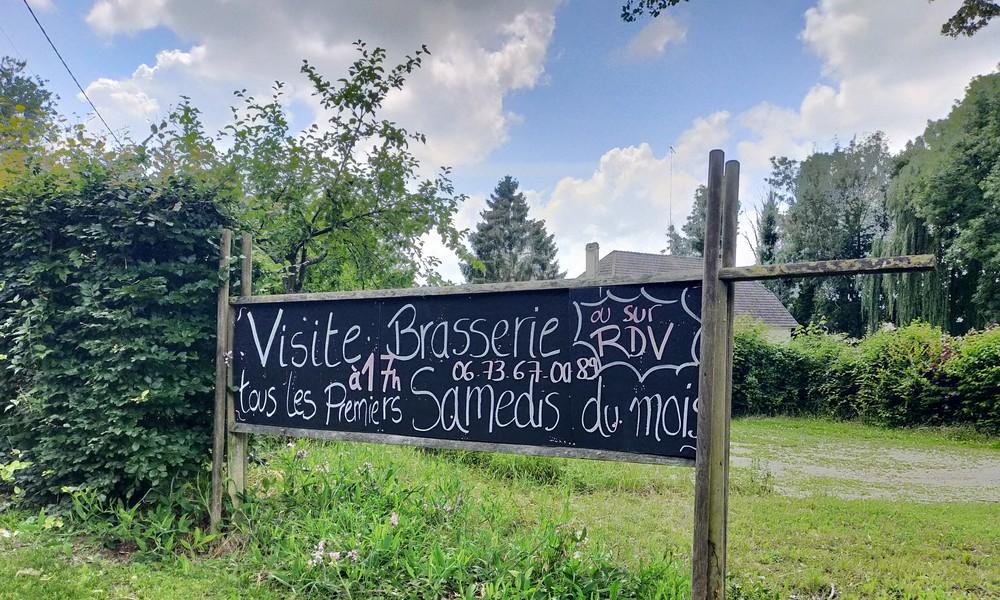 Visite Brasserie
ou sur
RDV
à 17h 06.73.67.00.89
tous les Premiers Samedis du mois